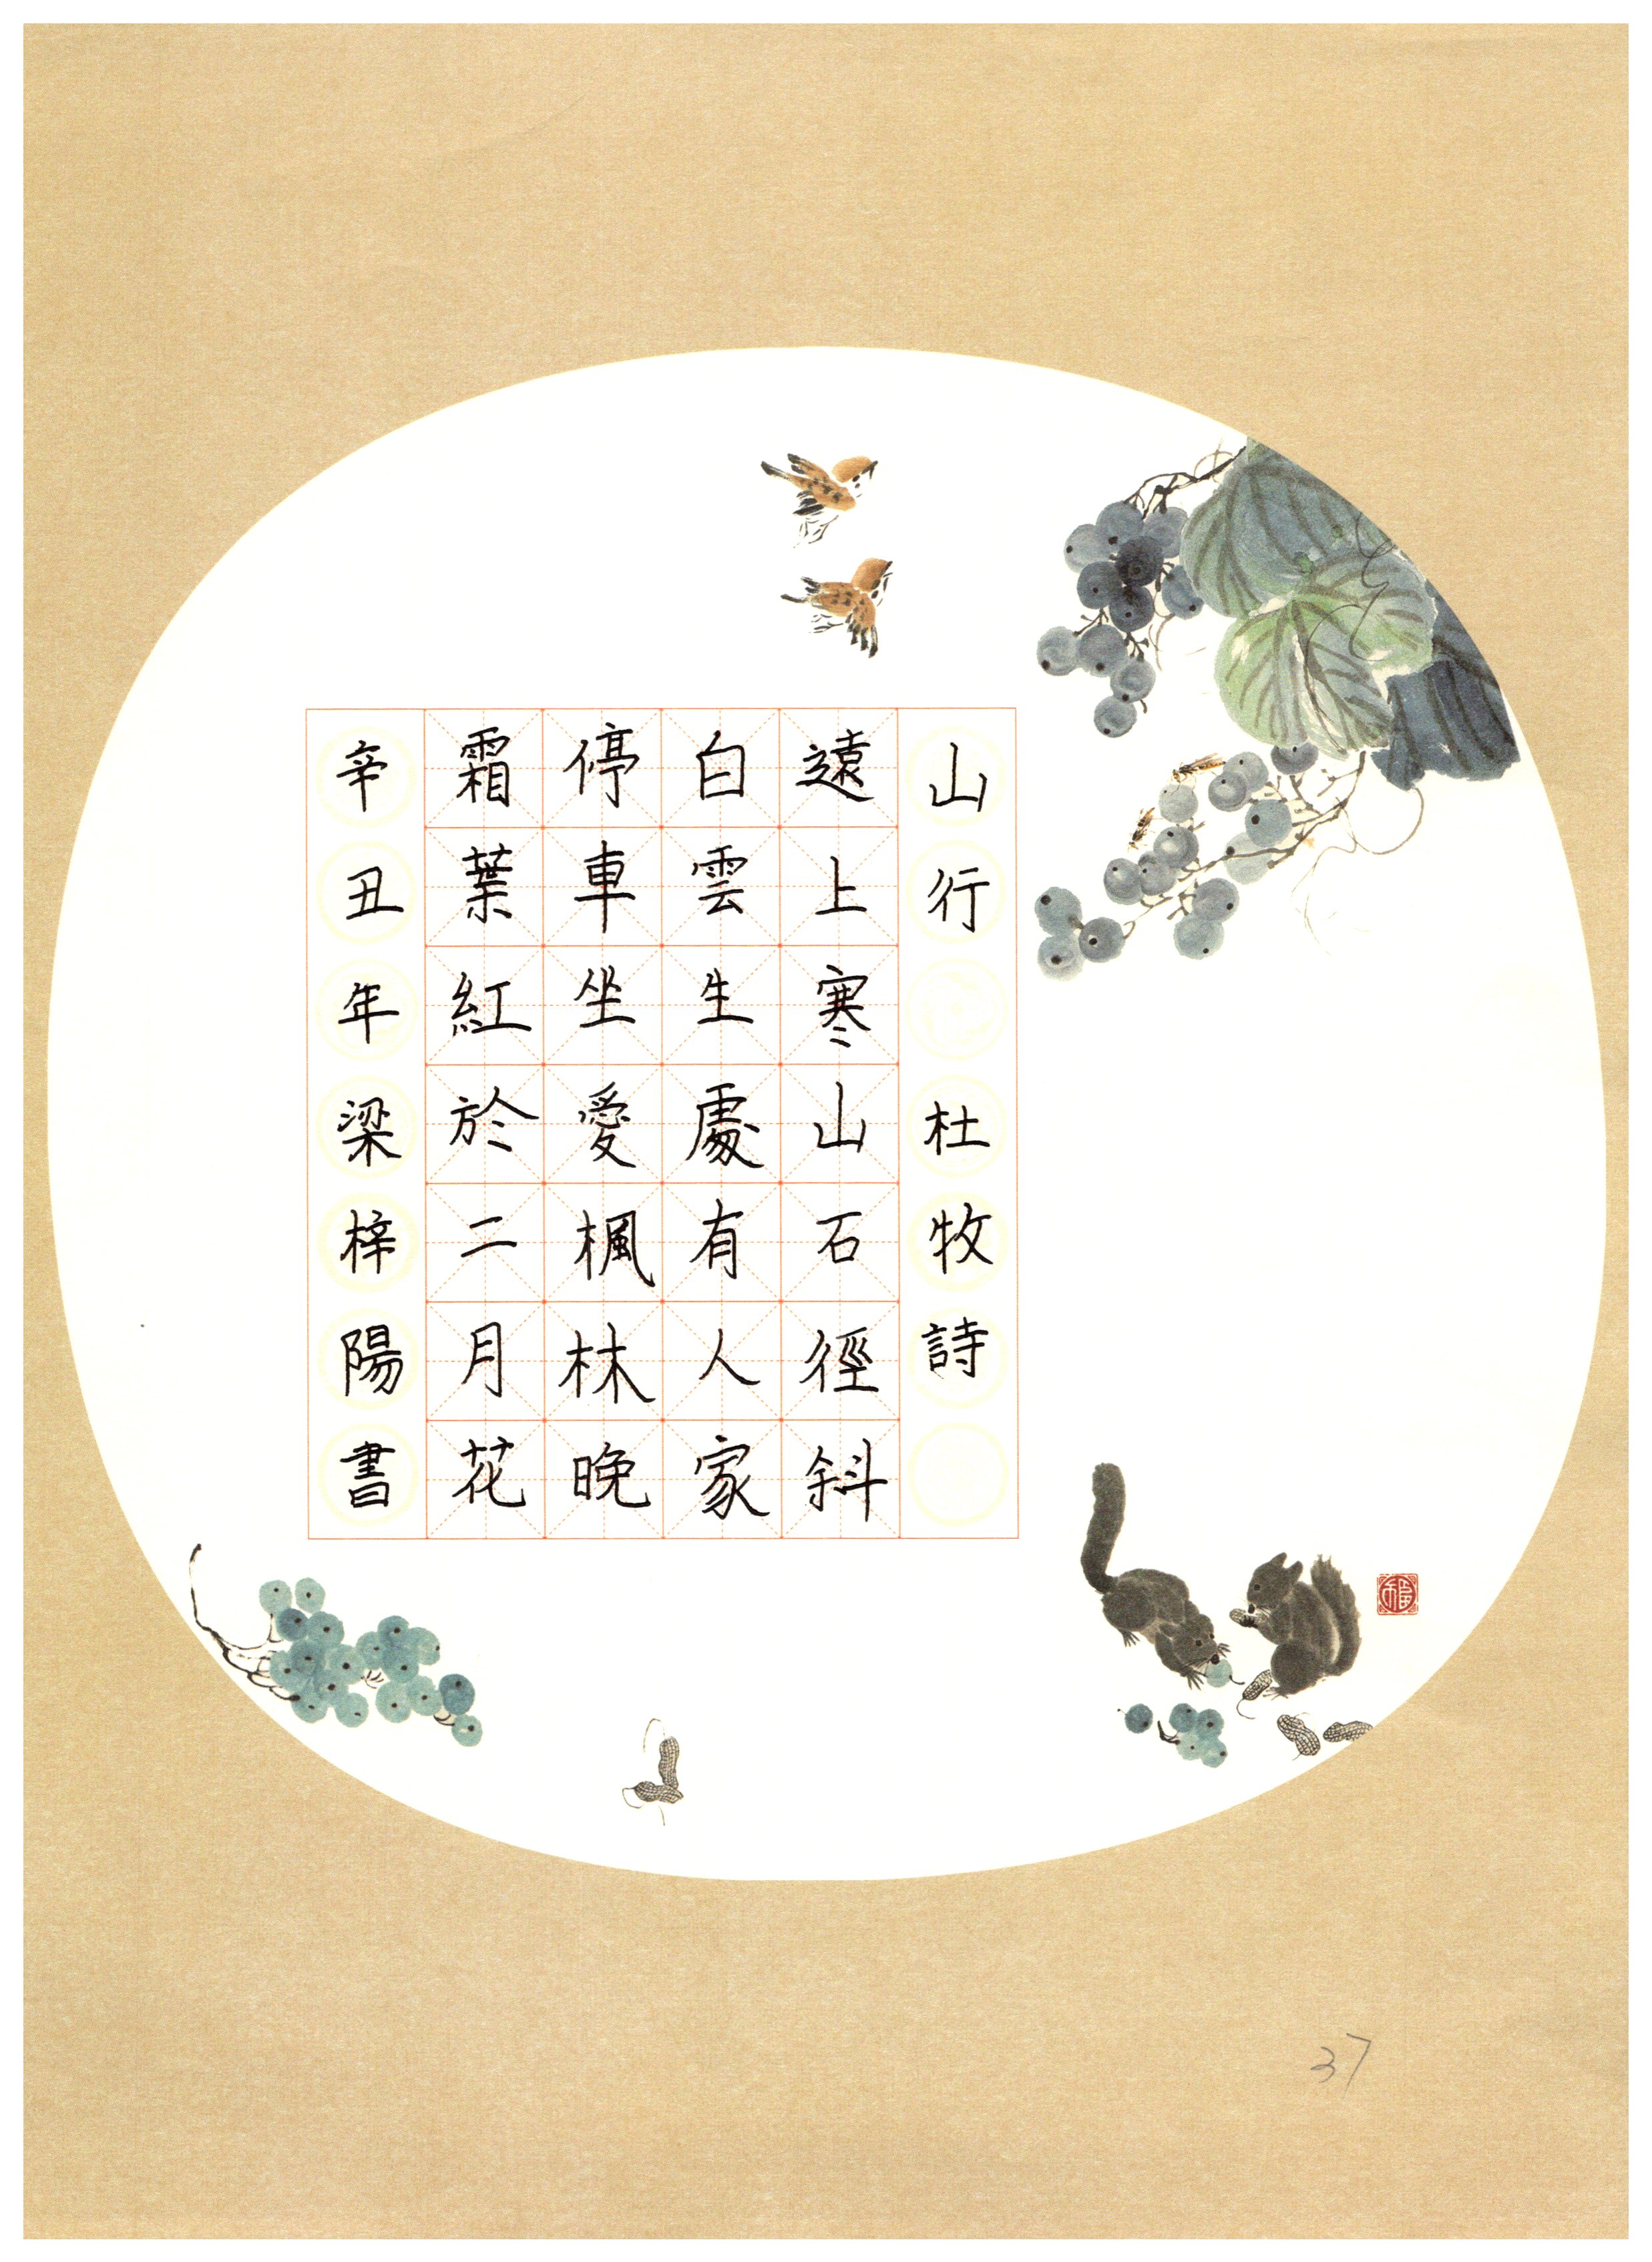 山行 杜牧詩
遠上寒山石徑斜
白雲生處有人家
停車坐愛楓林晚
霜葉紅於二月花
辛丑年梁梓陽書
福
37